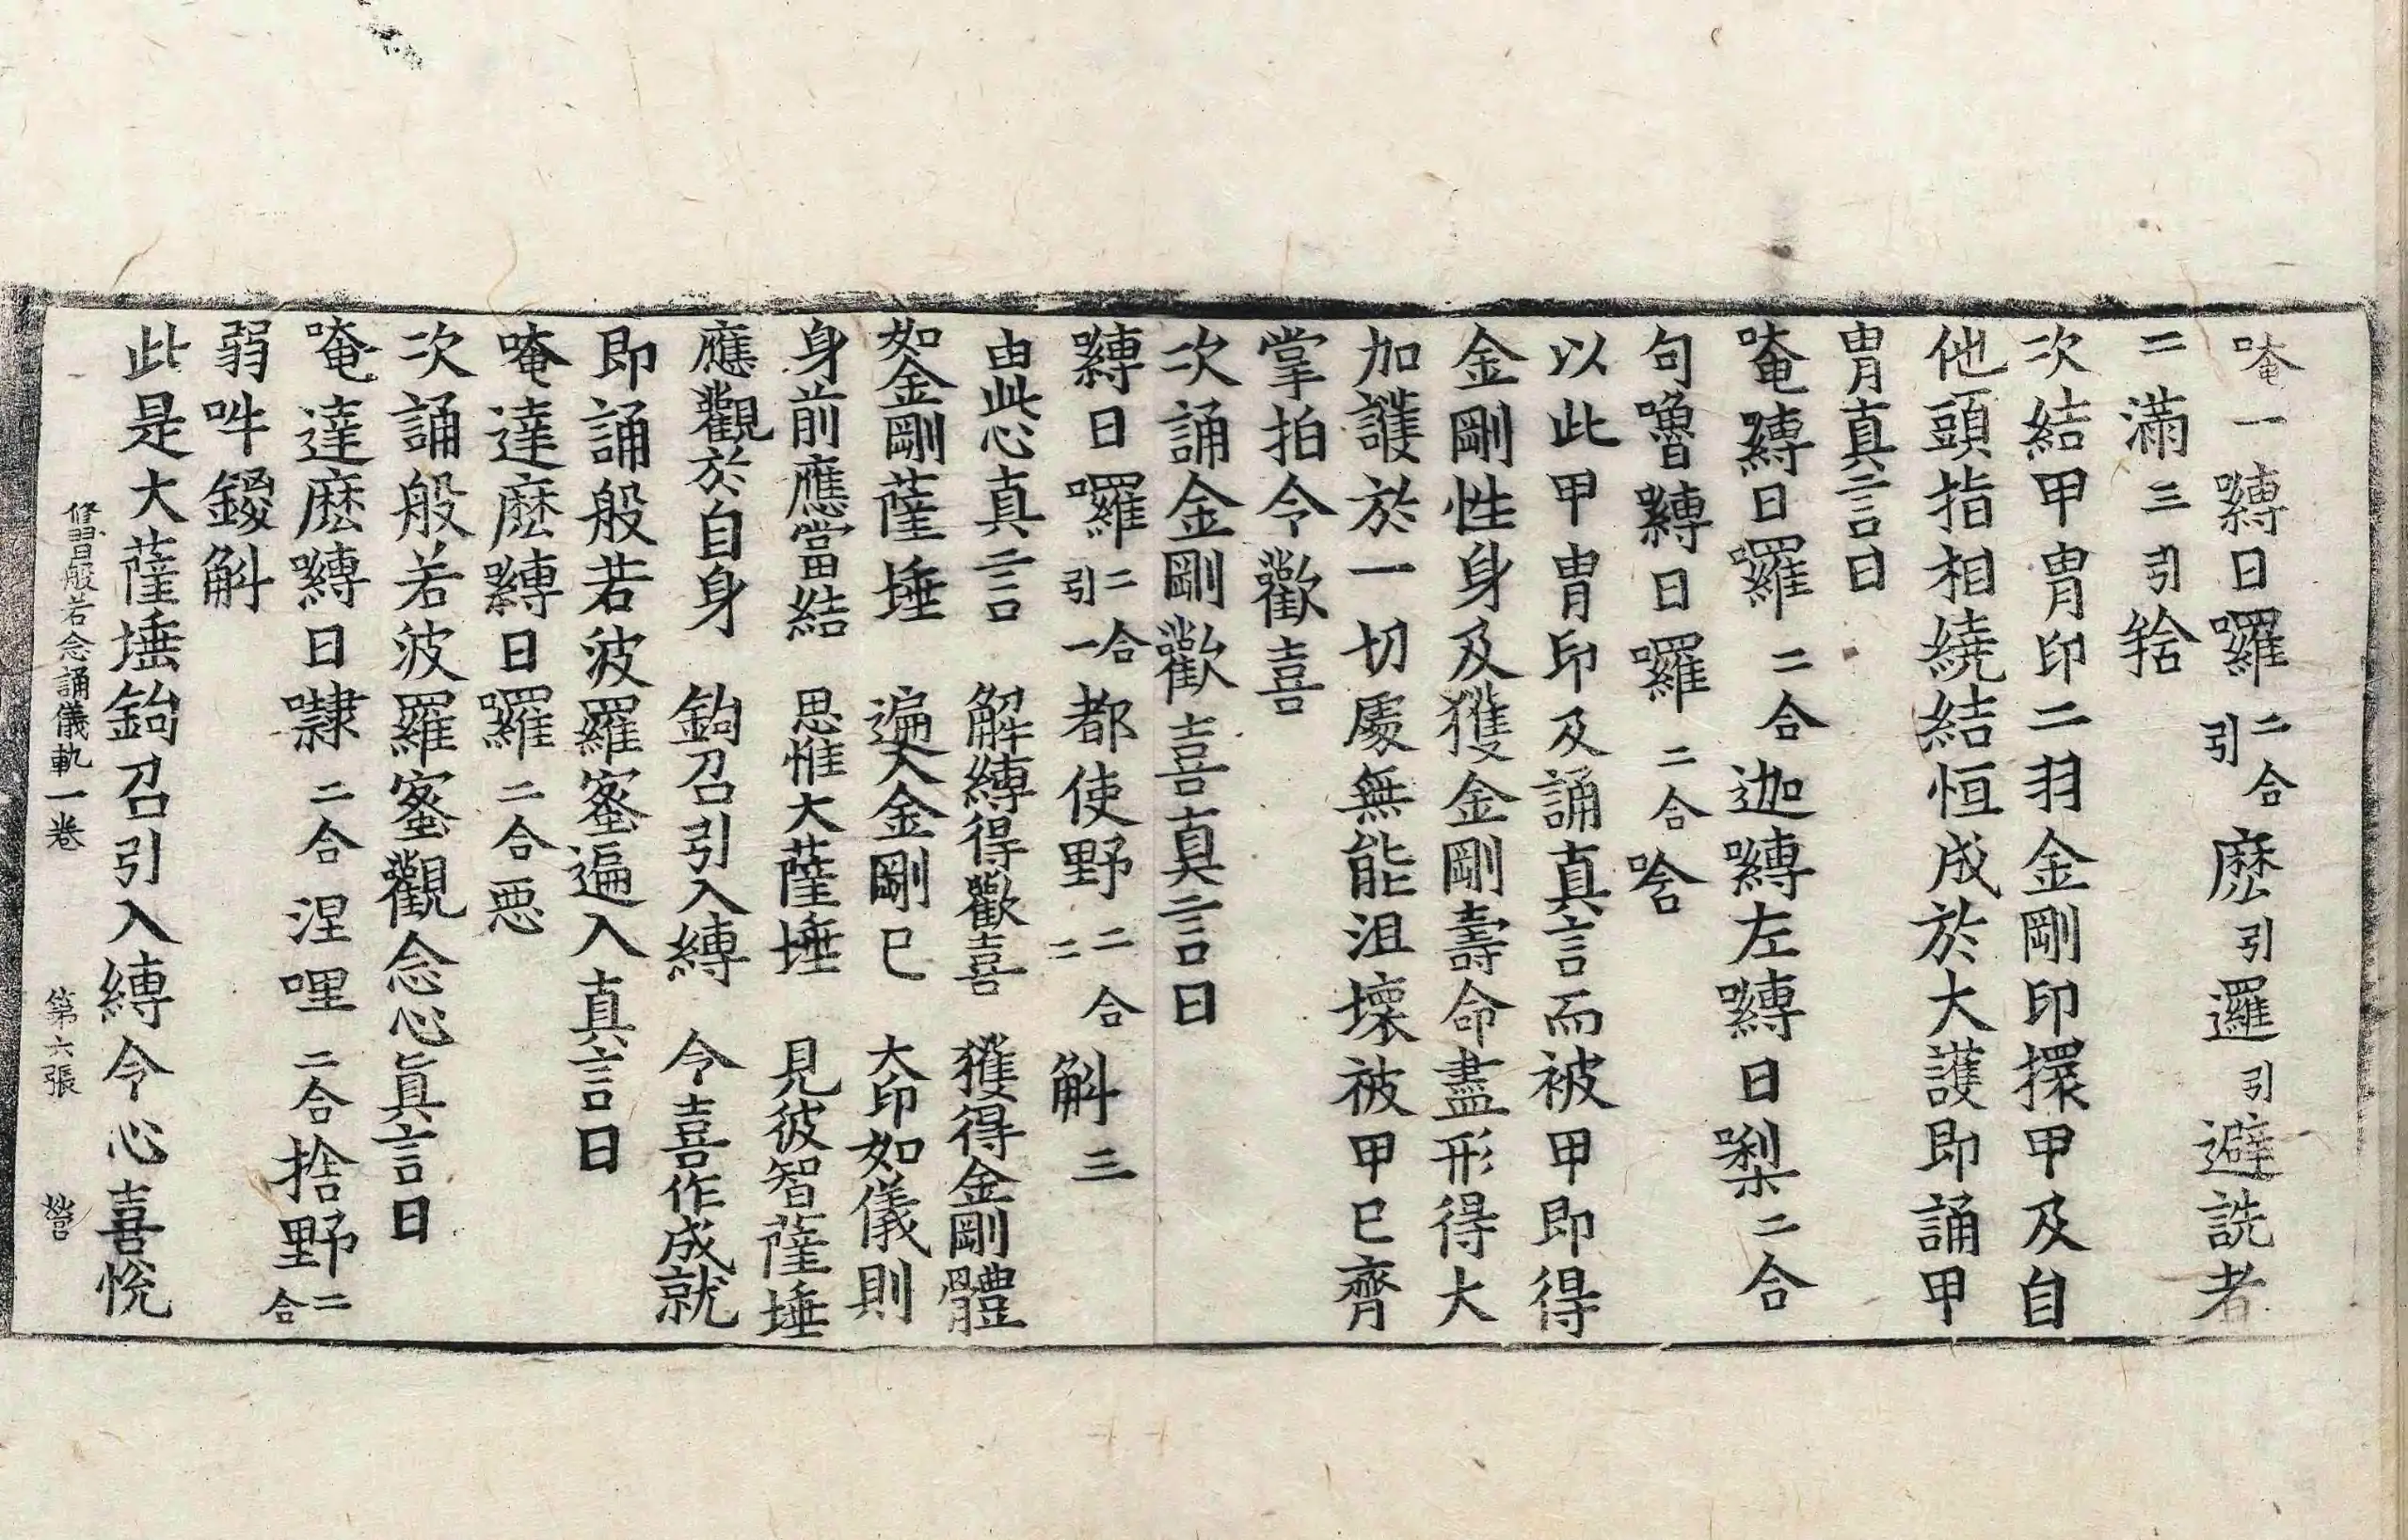 唵一嚩日囉二合引麽引邏引避詵者
二滿三引𤙖
次結甲冑印二羽金剛印擐甲及自
他頭指相繞結恒成於大護即誦甲
冑真言曰
唵嚩日囉二合迦嚩左嚩日㘑二合
句嚕嚩日囉二合唅
以此甲冑印及誦真言而被甲即得
金剛性身及獲金剛壽命盡形得大
加護於一切處無能沮壞被甲已齊
掌拍令歡喜
次誦金剛歡喜真言曰
嚩日囉二合引一都使野二合二斛三
由此心真言　解縛得歡喜　獲得金剛體
如金剛薩埵　遍入金剛已　大印如儀則
身前應當結　思惟大薩埵　見彼智薩埵
應觀於自身　鉤召引入縛　令喜作成就
即誦般若波羅蜜遍入真言曰
唵達麽嚩日囉二合惡
次誦般若波羅蜜觀念心真言曰
唵達麽嚩日㘑二合涅哩二合捨野二合
弱吽鑁斛
此是大薩埵鉤召引入縛令心喜悅
修習般若念誦儀軌一卷　第六張　營